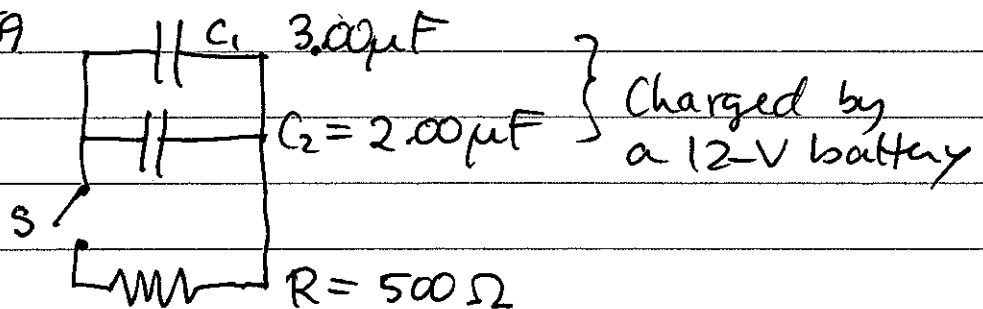 C₁ 3.00μF
C₂ = 2.00μF } Charged by
a 12-V battery
S
R = 500 Ω